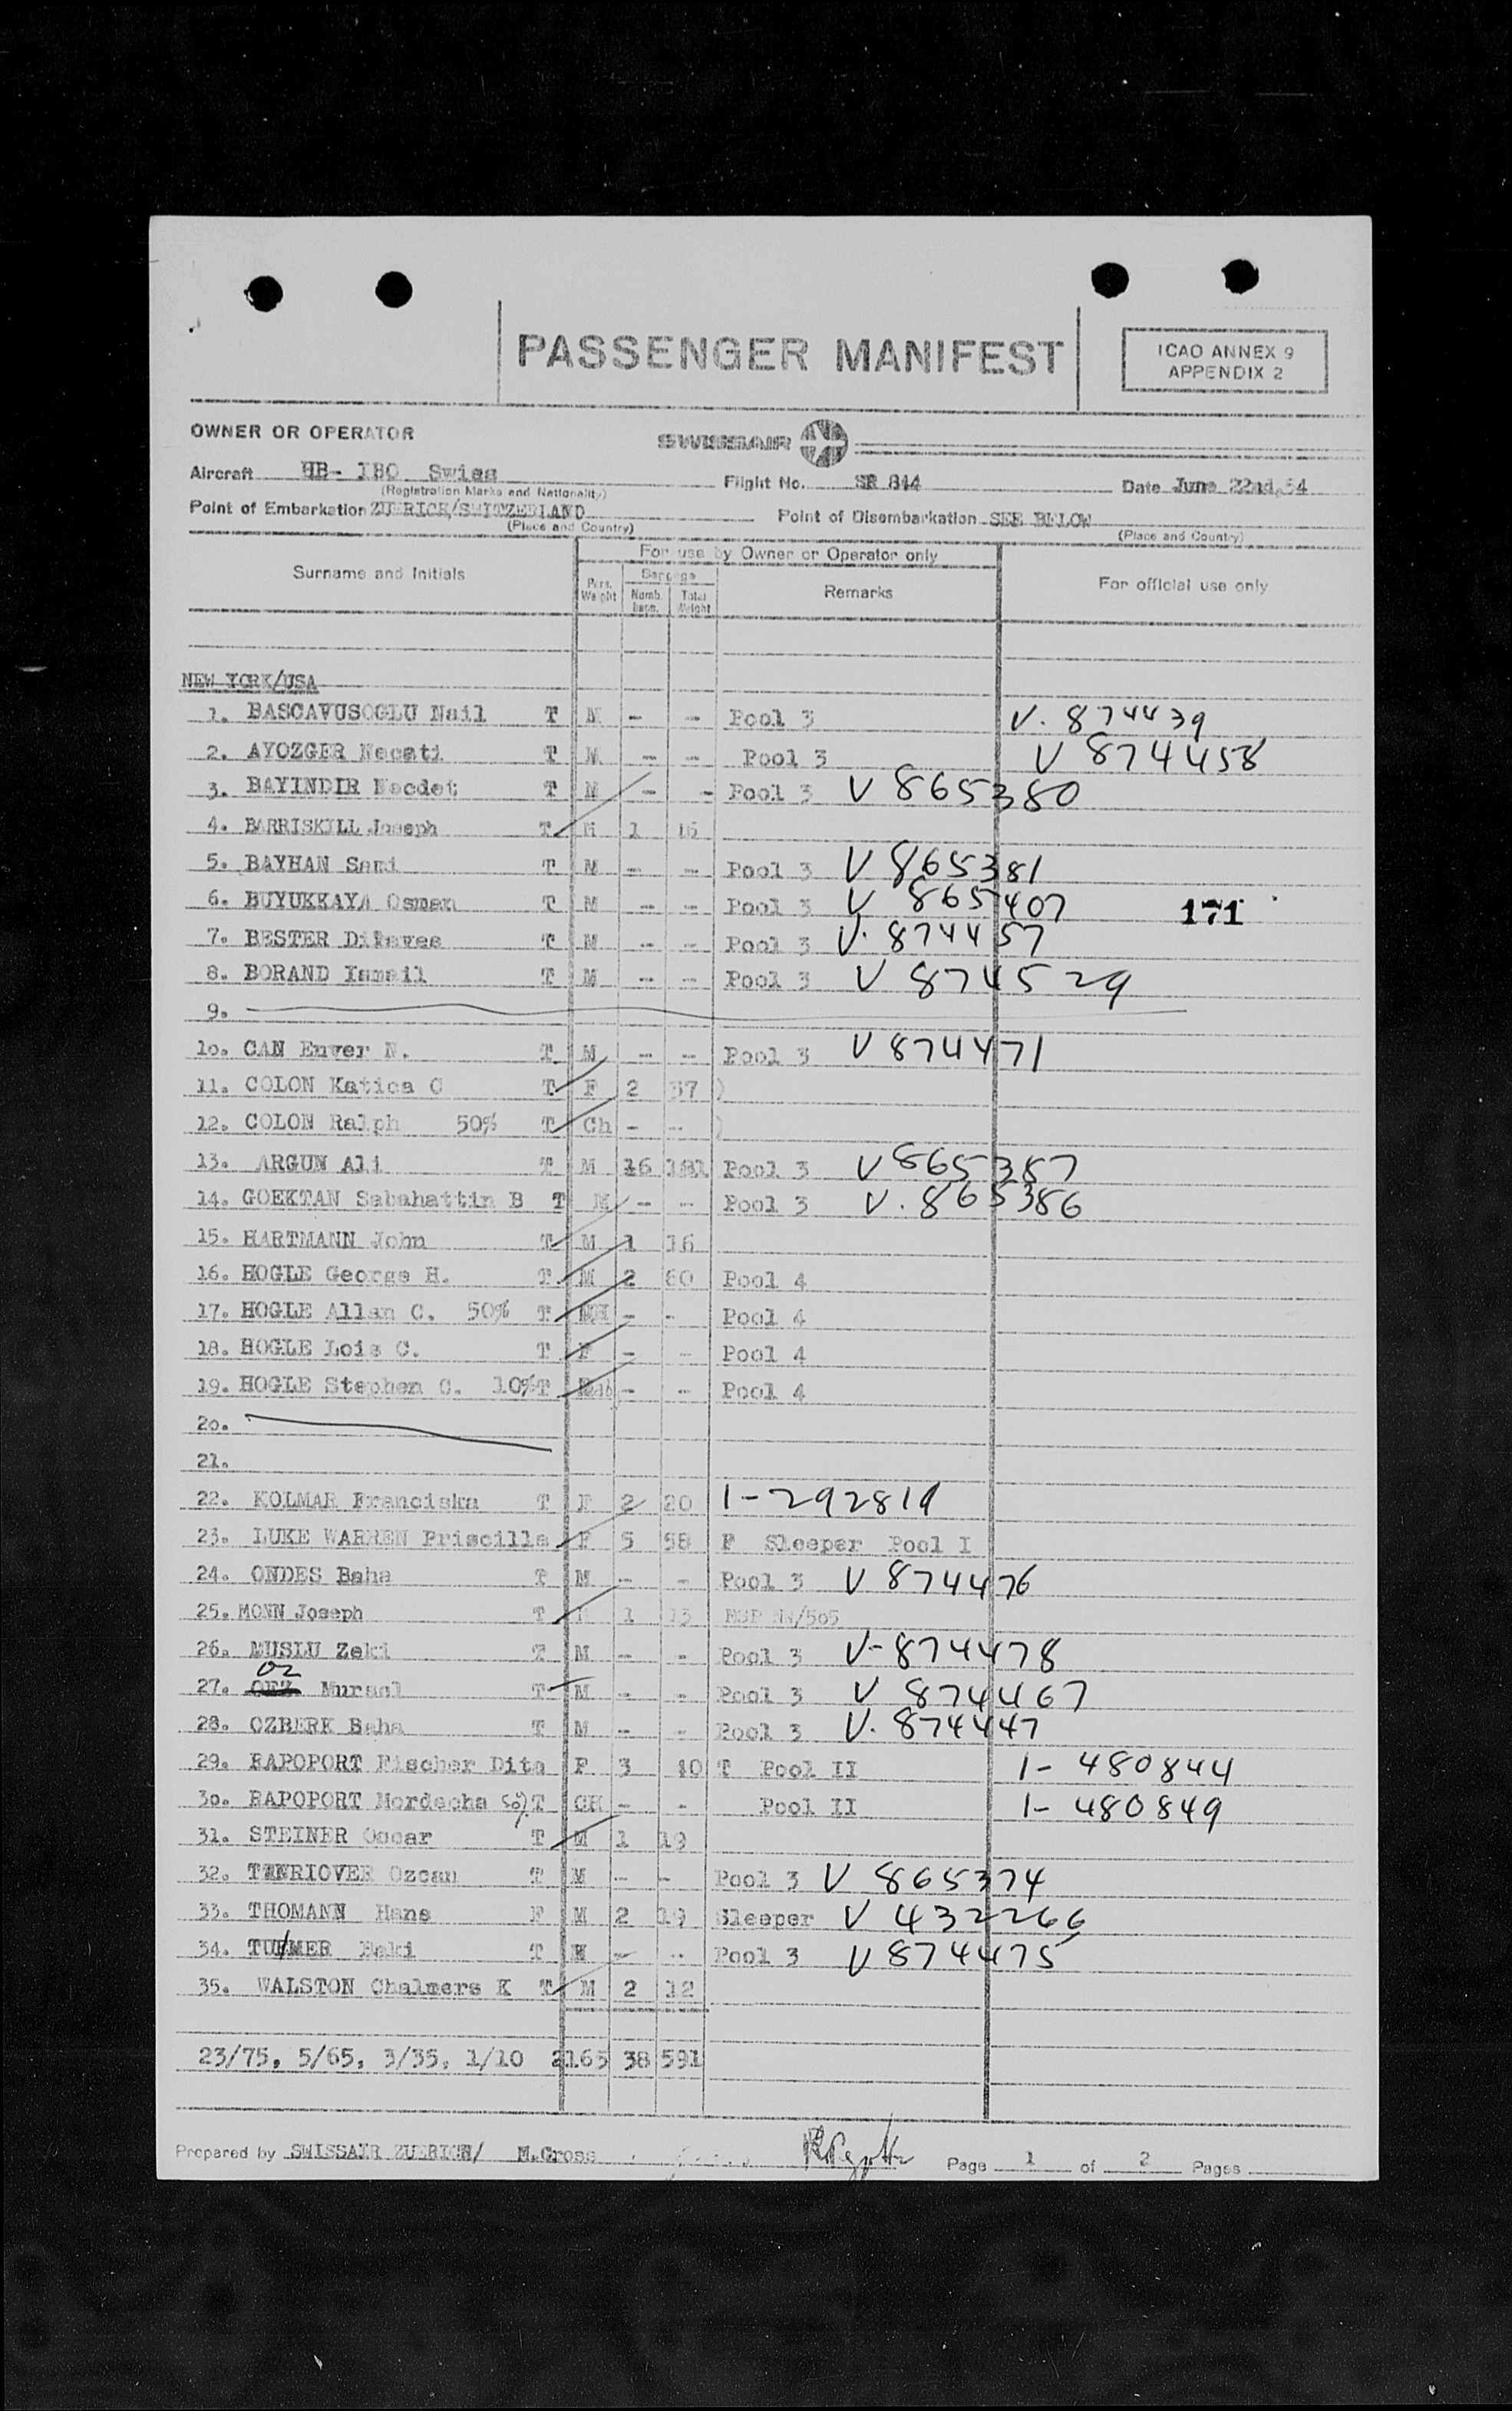 PASSENGER MANIFEST
ICAO ANNEX 9
APPENDIX 2
OWNER OR OPERATOR
SWISSAIR
Aircraft HB- IBO Swiss Flight No. SR 844 Date June 22nd,54
(Registration Marks and Nationality)
Point of Embarkation ZUERICH/SWITZERLAND Point of Disembarkation SEE BELOW
(Place and Country) (Place and Country)
For use by Owner or Operator only
Surname and Initials Pers. Weight Baggage Numb. Total Weight Remarks For official use only
NEW YORK/USA
1. BASCAVUSOGLU Nail T M - - Pool 3 V. 874439
2. AYOZGER Necati T M - - Pool 3 V 874458
3. BAYINDIR Necdet T M - - Pool 3 V 865380
4. BARRISKILL Joseph T M 1 16
5. BAYHAN Sami T M - - Pool 3 V 865381
6. BUYUKKAYA Osman T M - - Pool 3 V 865407 171
7. BESTER T M - - Pool 3 V. 874457
8. BORAND Ismail T M - - Pool 3 V 874529
9.
10. CAN Enver N. T M - - Pool 3 V 874471
11. COLON Katica C T F 2 37 )
12. COLON Ralph 50% T Ch - - )
13. ARGUN Ali T M 16 181 Pool 3 V 865387
14. GOEKTAN Sabahattin B T M - - Pool 3 V. 865386
15. HARTMANN John T M 1 16
16. HOGLE George H. T M 2 60 Pool 4
17. HOGLE Allan C. 50% T - - Pool 4
18. HOGLE Lois C. T F - - Pool 4
19. HOGLE Stephen C. 10% T - - Pool 4
20.
21.
22. KOLMAR Franciska T F 2 20 1-292819
23. LUKE WARREN Priscilla F 5 58 F Sleeper Pool I
24. ONDES Baha T M - - Pool 3 V 874476
25. MONN Joseph T 1 13
26. MUSLU Zeki T M - - Pool 3 V-874478
OZ
27. OEZ Mursel T M - - Pool 3 V 874467
28. OZBERK Baha T M - - Pool 3 V. 874447
29. RAPOPORT Fischer Dita F 3 40 T Pool II 1- 480844
30. RAPOPORT Mordecha 50% T CH - - Pool II 1- 480849
31. STEINER Oscar T M 1 19
32. TANRIOVER Ozcan T M - - Pool 3 V 865374
33. THOMANN Hans F M 2 19 Sleeper V 432266
34. Baki T M - - Pool 3 V 874475
35. WALSTON Chalmers K T M 2 12
23/75, 5/65, 3/35, 1/10 2165 38 591
Prepared by SWISSAIR ZUERICH/ M.Gross Page 1 of 2 Pages